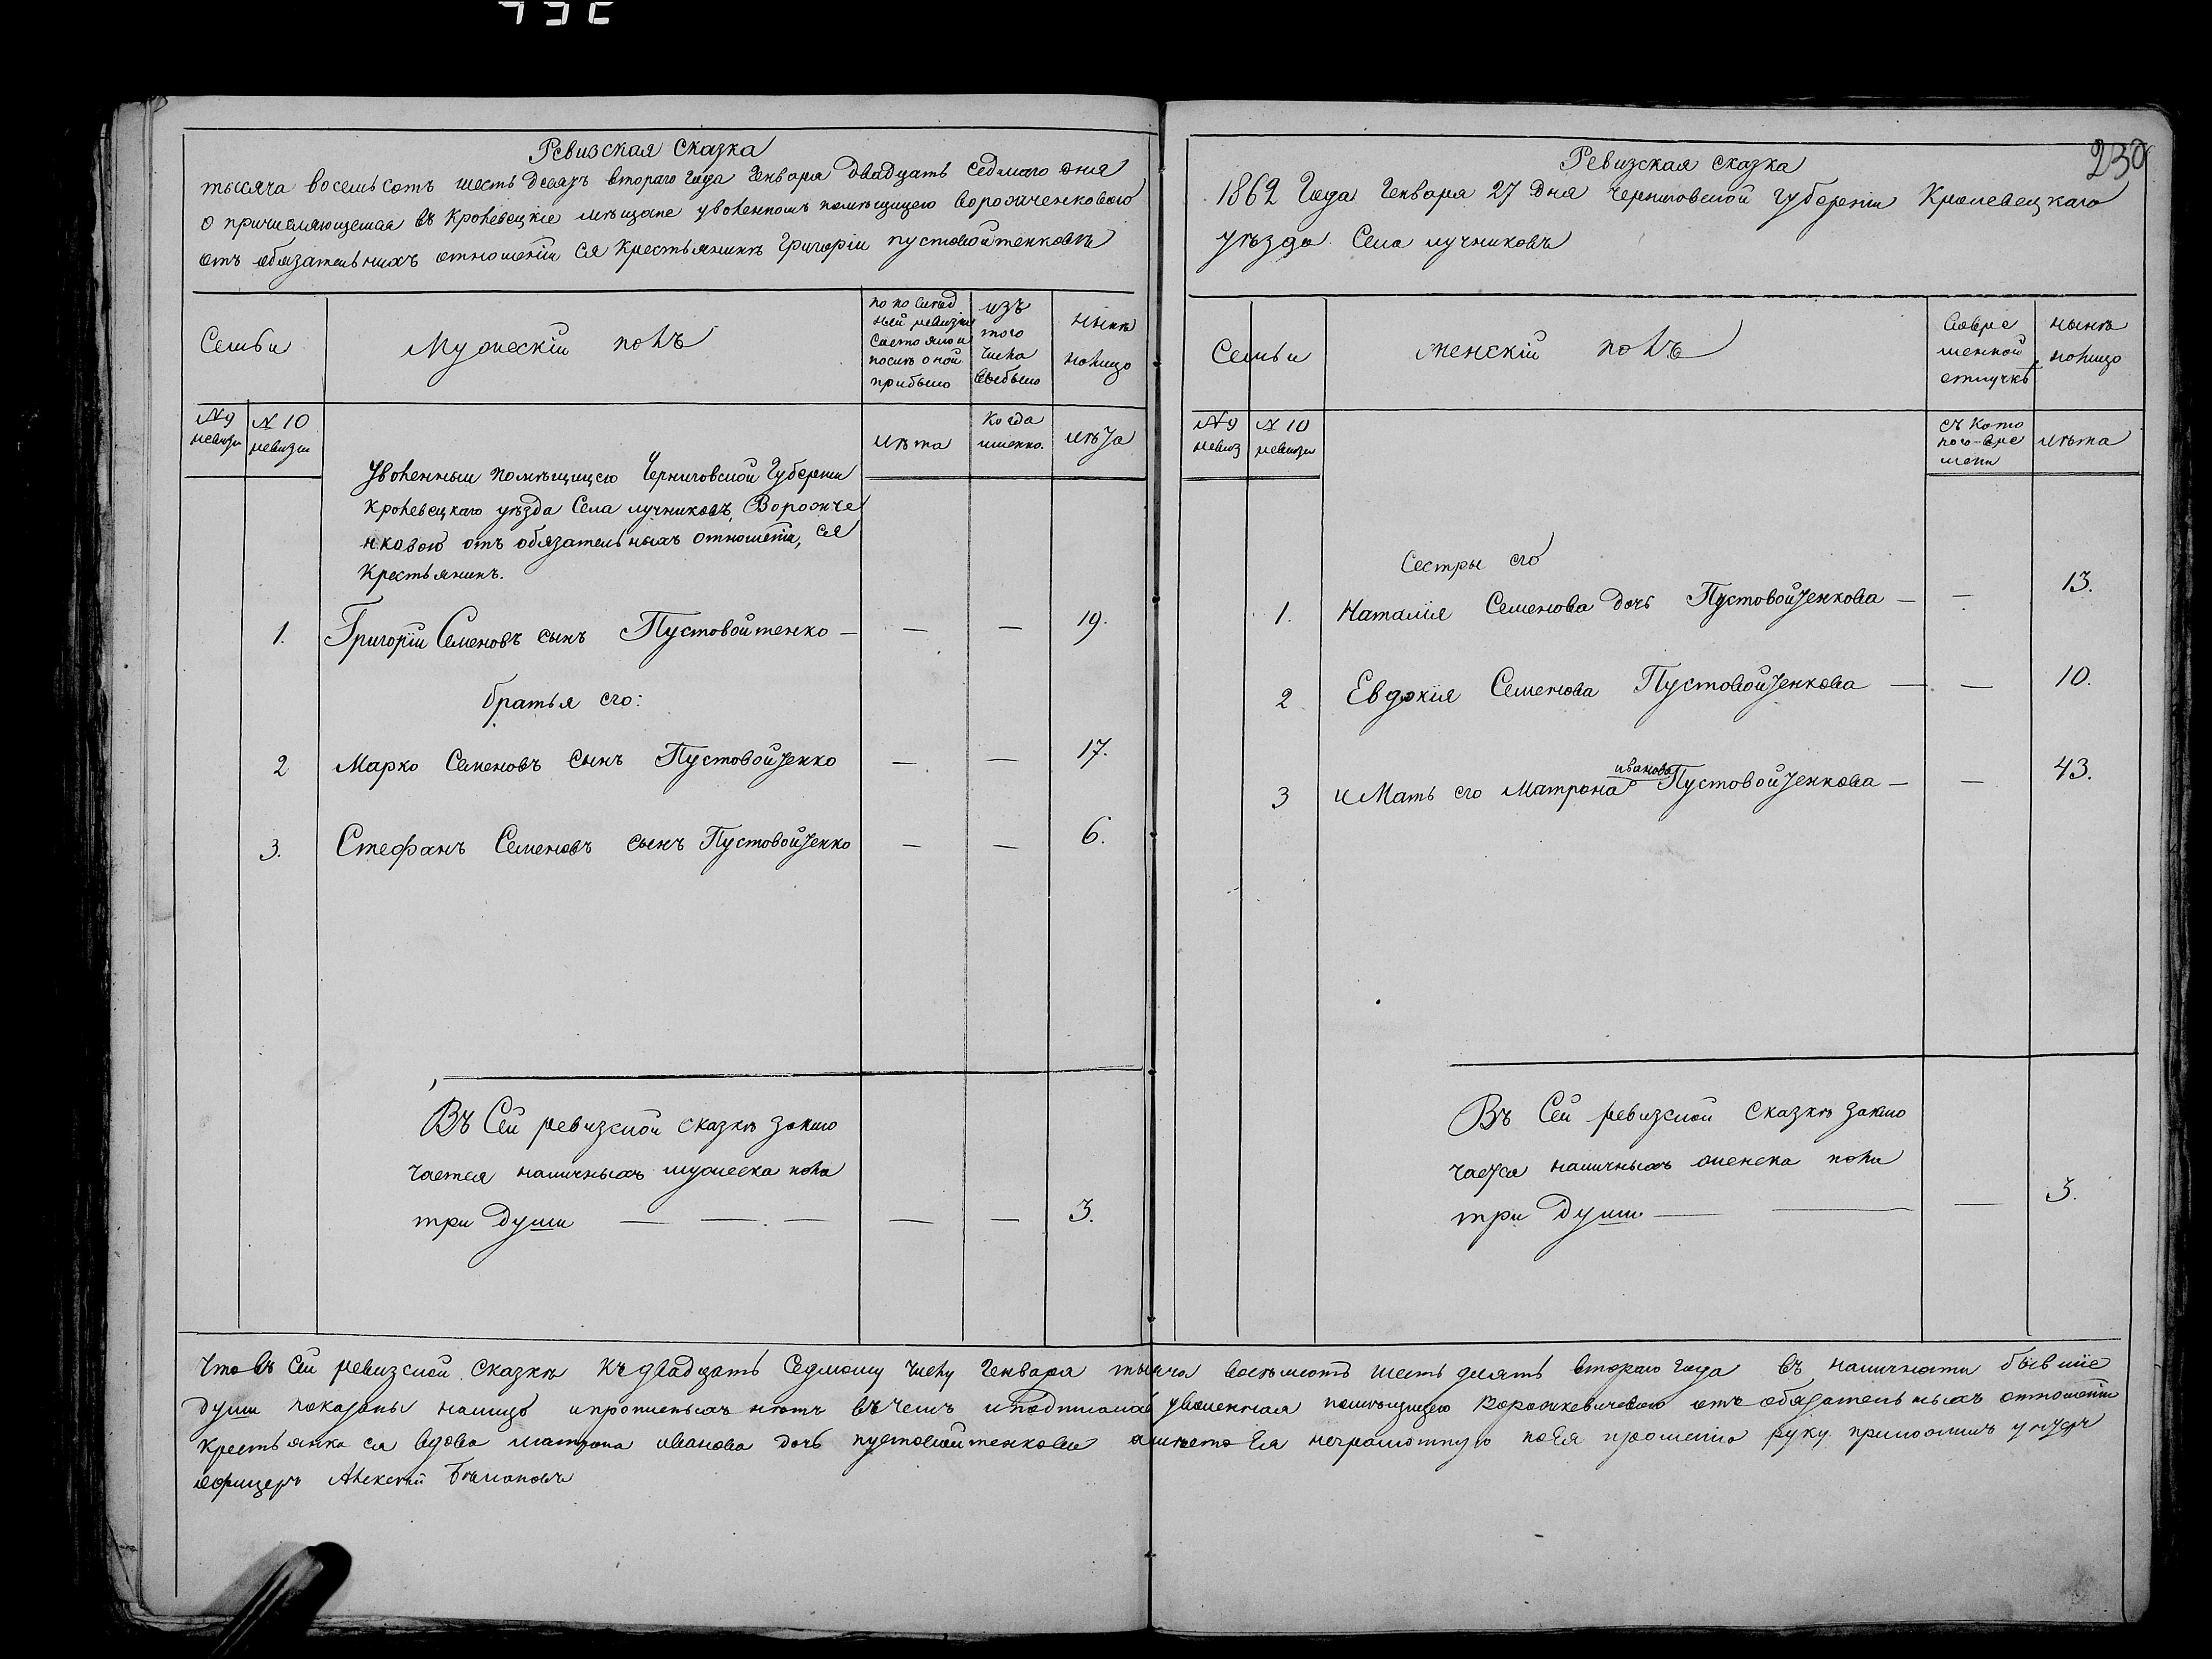 Ревизская Сказка
тысяча восемьсотъ шестьдесятъ втораго Года Генваря двадцать Седмаго дня
о причисляющемся въ Кролевецкіе мѣщане уволенномъ помѣщицею Ворожченковою
отъ обязательныхъ отношеній ся Крестьянинѣ Григоріи Пустовойтенковѣ
Семьи
Мужескій полъ
по послѣд
ней ревизіи
состояло и
послѣ оной
прибыло
изъ
того
числа
выбыло
нынѣ
налицо
№ 9
ревизіи
№ 10
ревизіи
лѣта
Когда
именно.
лѣта
Уволенный помѣщицею Черниговской Губерніи
Кролевецкаго уѣзда Села лучниковъ, Ворожче
нковою отъ обязательныхъ отношеній, ея
Крестьянинъ.
1. Григорій Семеновъ сынъ Пустовойтенко — — — 19.
братья его:
2 Марко Семеновъ сынъ Пустовойтенко — — 17.
3. Стефанъ Семеновъ сынъ Пустовойтенко — — 6.
Въ Сей ревизской сказкѣ заклю
чается наличныхъ мужеска пола
три Души — — — — — 3.
239
Ревизская сказка
1862 Года Генваря 27 Дня Черниговской Губерніи Кролевецкаго
уѣзда Села лучниковъ
Семьи
женскій полъ
Совре
менной
отлучкѣ
нынѣ
налицо
№ 9
ревиз
№ 10
ревизіи
съ кото
раго вре
мени
лѣта
Сестры его
1. Наталія Семенова дочь Пустовойтенкова — — 13.
2 Евдокія Семенова Пустовойтенкова — — 10.
иванова
3 и Мать его Матрона Пустовойтенкова — — 43.
Въ Сей ревизской Сказкѣ заклю
чается наличныхъ женска пола
три Души — — — 3.
Что въ сей ревизской сказкѣ къ двадцать Седмому числу Генваря тысяча восемьсотъ шесть десятъ втораго года въ наличности бывшіе
души показаны налицо и прописныхъ нѣтъ въ чемъ и подписалась уволенная помѣщицею Ворожкевичевою отъ обязательныхъ отношеній
крестьянка ея вдова матрона иванова дочь пустовойтенкова а вместо ея неграмотную по ея прошенію руку приложилъ унтеръ
офицеръ Алексѣй